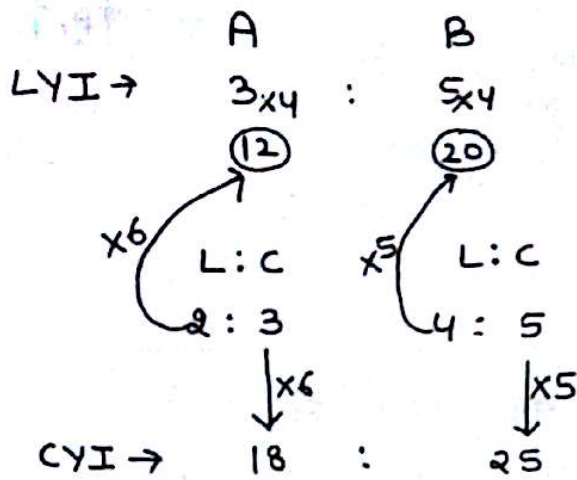 A B
LYI → 3×4 : 5×4
12 20
×6 ×5
L : C L : C
2 : 3 4 : 5
×6 ×5
CYI → 18 : 25